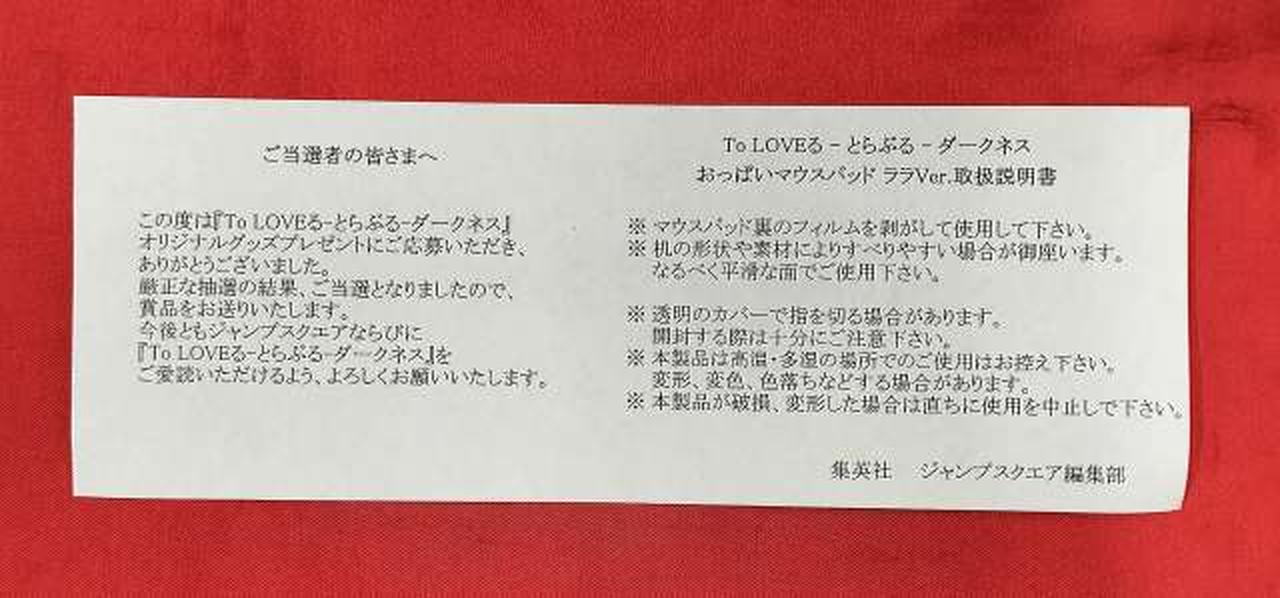 ご当選者の皆さまへ
この度は『To LOVEる-とらぶる-ダークネス』
オリジナルグッズプレゼントにご応募いただき、
ありがとうございました。
厳正な抽選の結果、ご当選となりましたので、
賞品をお送りいたします。
今後ともジャンプスクエアならびに
『To LOVEる-とらぶる-ダークネス』を
ご愛読いただけるよう、よろしくお願いいたします。
To LOVEる－とらぶる－ダークネス
おっぱいマウスパッド ララVer.取扱説明書
※ マウスパッド裏のフィルムを剥がして使用して下さい。
※ 机の形状や素材によりすべりやすい場合が御座います。
なるべく平滑な面でご使用下さい。
※ 透明のカバーで指を切る場合があります。
開封する際は十分にご注意下さい。
※ 本製品は高温・多湿の場所でのご使用はお控え下さい。
変形、変色、色落ちなどする場合があります。
※ 本製品が破損、変形した場合は直ちに使用を中止して下さい。
集英社　ジャンプスクエア編集部